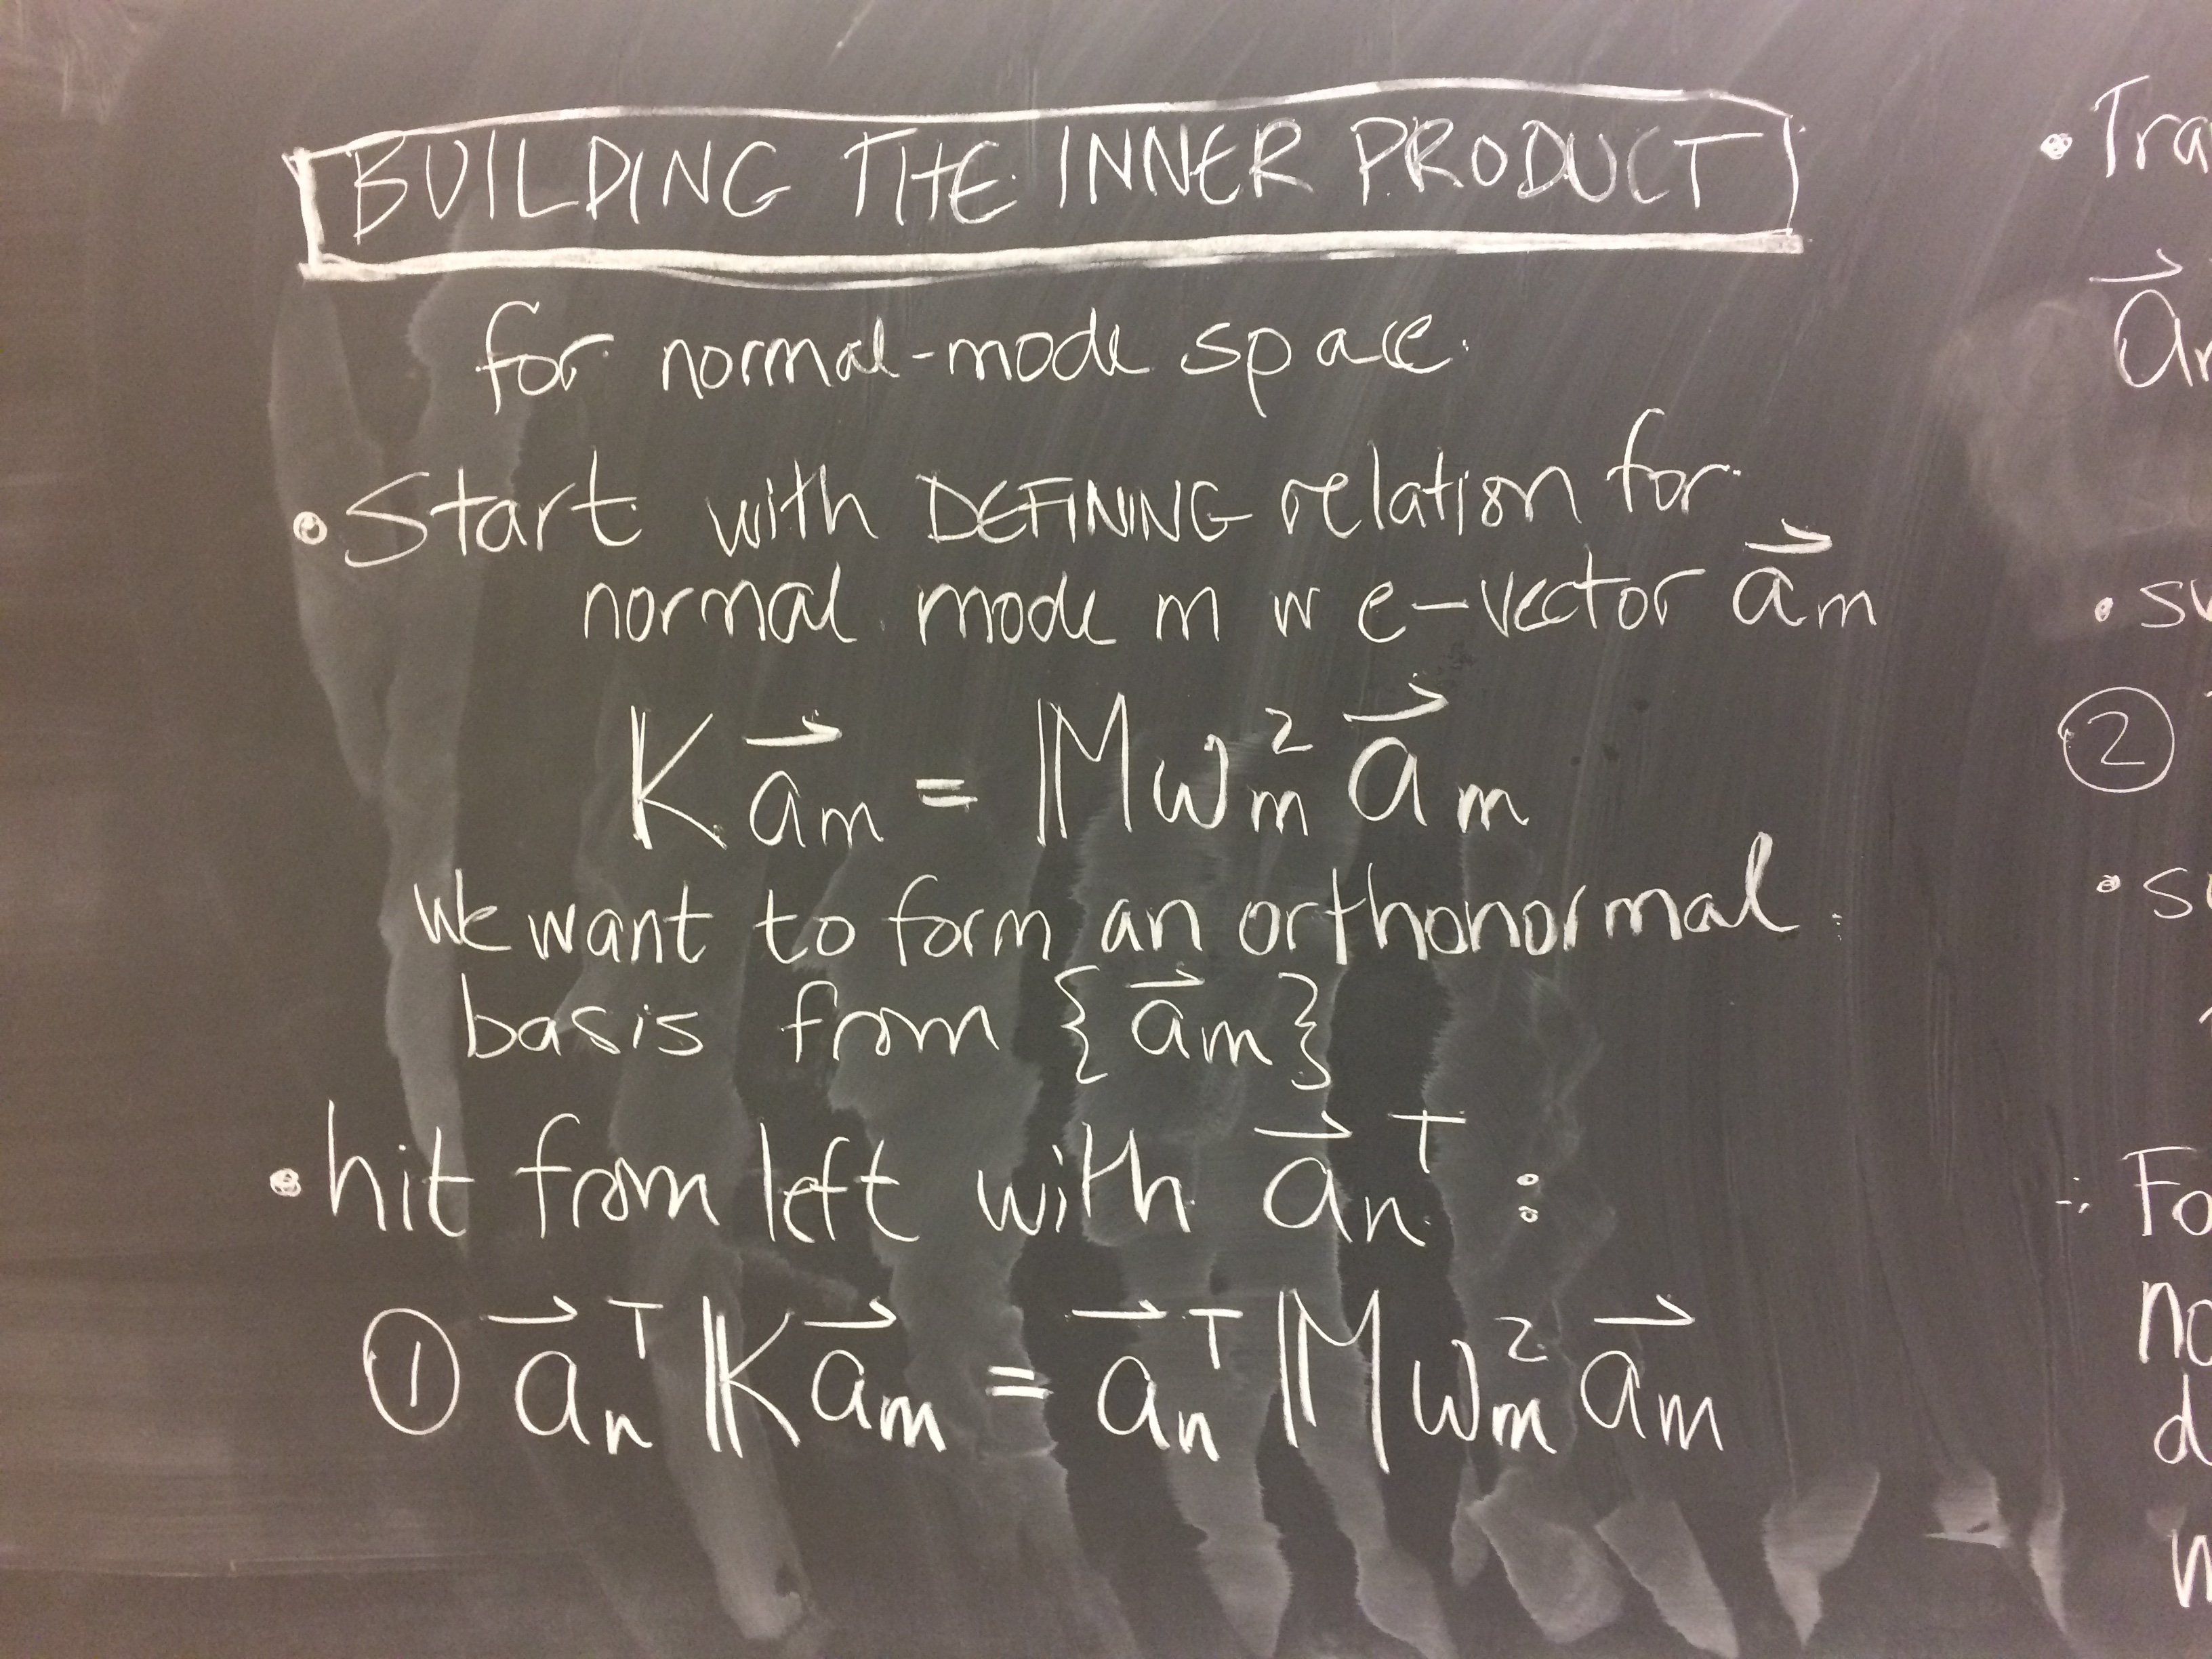 BUILDING THE INNER PRODUCT
for normal-mode space
• Start with DEFINING relation for
normal mode m w e-vector a⃗m
𝕂 a⃗m = 𝕄 ωm² a⃗m
we want to form an orthonormal
basis from {a⃗m}
• hit from left with a⃗nᵀ :
① a⃗nᵀ 𝕂 a⃗m = a⃗nᵀ 𝕄 ωm² a⃗m
②